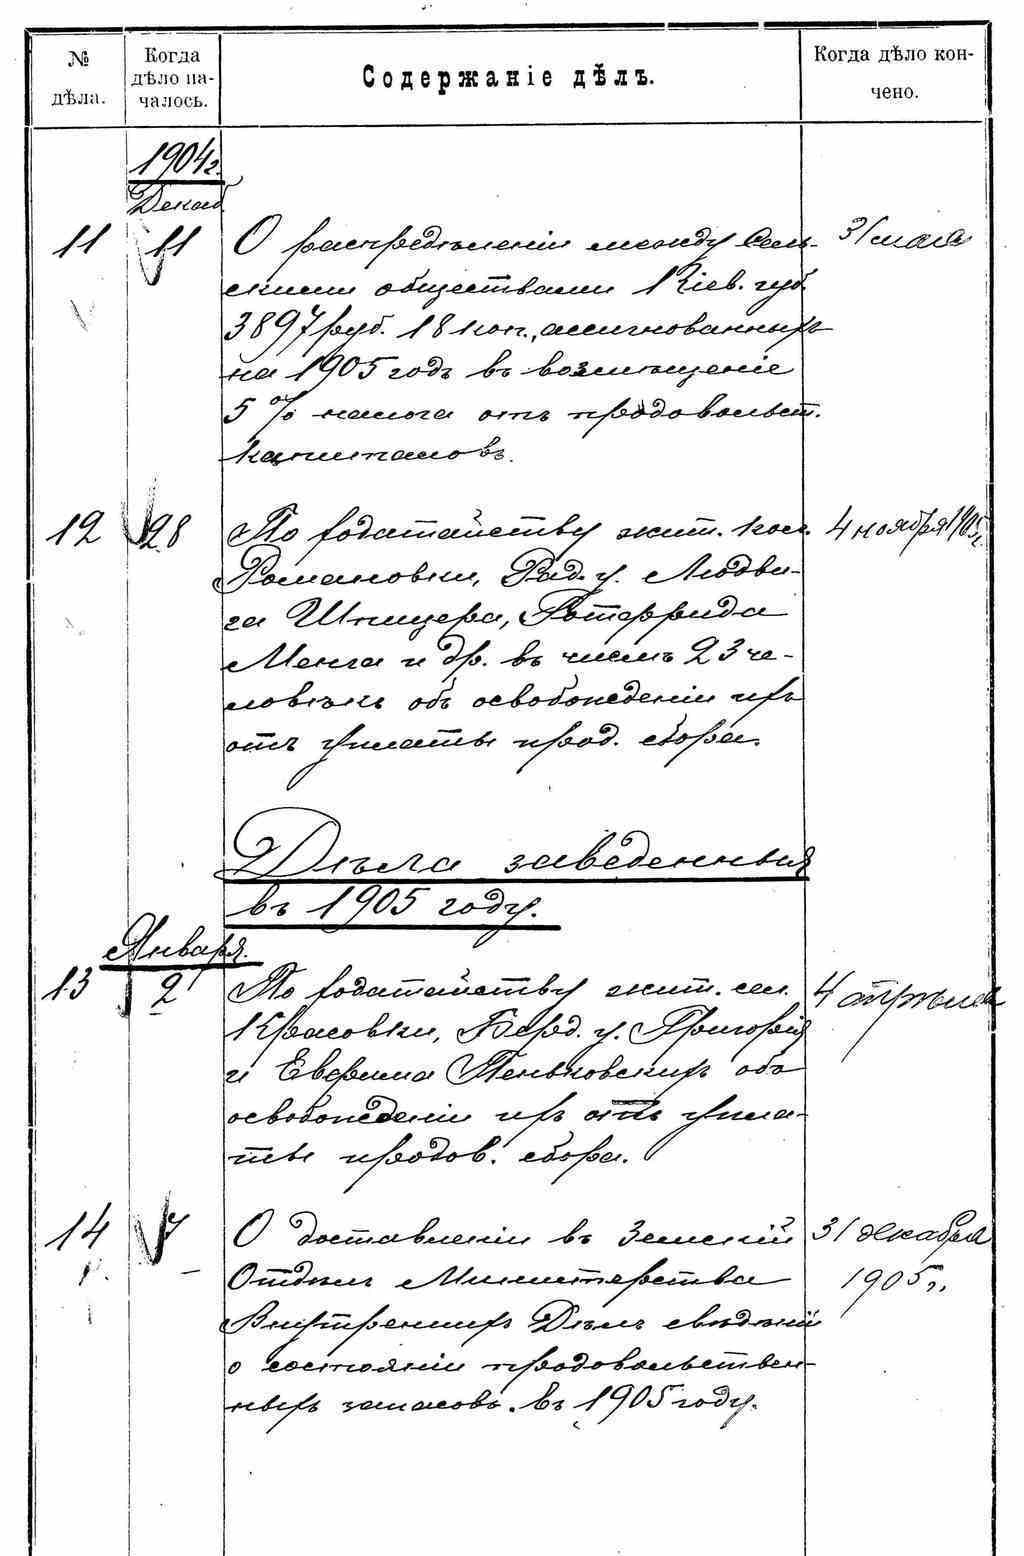 № дѣла.
Когда дѣло началось.
Содержаніе дѣлъ.
Когда дѣло кончено.
1904 г.
Декаб.
11 11 О распредѣленіи между сель- 31 мая
скими обществами Кіев. губ.
3897 руб. 18 коп., ассигнованныхъ
на 1905 годъ въ возмѣщеніе
5% налога отъ продовольст.
капиталовъ.
12 28 По ходатайству жит. кол. 4 ноября 1905 г.
Романовки, Рад. у. Людви-
га Шпицера, Готфрида
Менга и др. въ числѣ 23 че-
ловѣкъ объ освобожденіи ихъ
отъ уплаты прод. сбора.
Дѣла заведенныя
въ 1905 году.
Января.
13 2 По ходатайству жит. сел. 4 апрѣля
Красовки, Берд. у. Григорія
и Евфима Пеньковскихъ объ
освобожденіи ихъ отъ упла-
ты продов. сбора.
14 7 О доставленіи въ Земскій 31 декабря
Отдѣлъ Министерства 1905 г.
Внутреннихъ Дѣлъ свѣдѣній
о состояніи продовольствен-
ныхъ запасовъ. въ 1905 году.